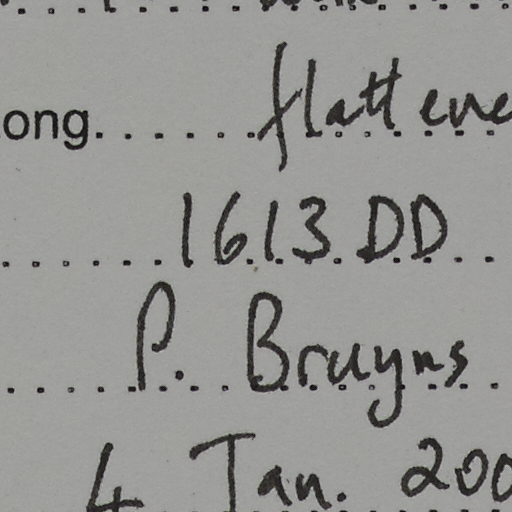 ong...... flattene
1613DD
P. Bruyns
4 Jan. 200